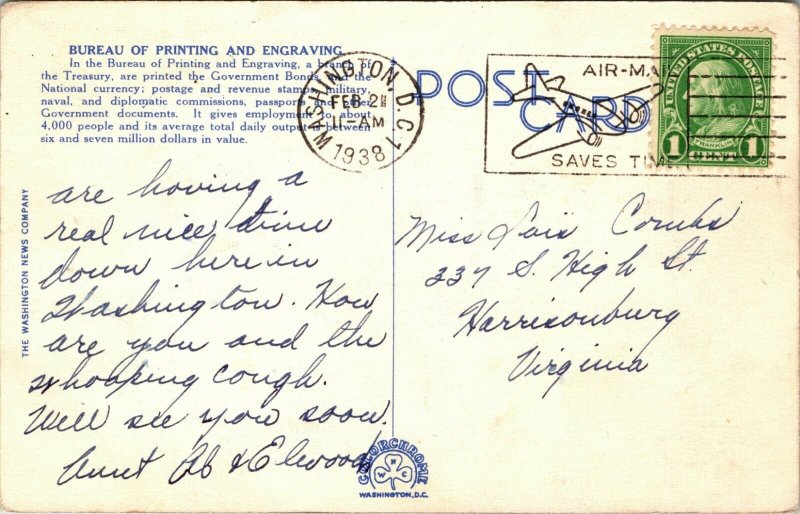 BUREAU OF PRINTING AND ENGRAVING
In the Bureau of Printing and Engraving, a branch of
the Treasury, are printed the Government Bonds and the
National currency; postage and revenue stamps, military,
naval, and diplomatic commissions, passports and other
Government documents. It gives employment to about
4,000 people and its average total daily output is between
six and seven million dollars in value.
WASHINGTON, D.C. 1
FEB 2
11-AM
1938
POST CARD
AIR-MA
SAVES TIME
UNITED STATES POSTAGE
FRANKLIN
1 CENT 1
THE WASHINGTON NEWS COMPANY
are having a
real nice time
down here in
Washington. How
are you and the
whooping cough.
Will see you soon.
Aunt Ab & Elwood
Miss Lois Combs
337 S. High St.
Harrisonburg
Virginia
COLORCHROME
W N C
WASHINGTON, D.C.